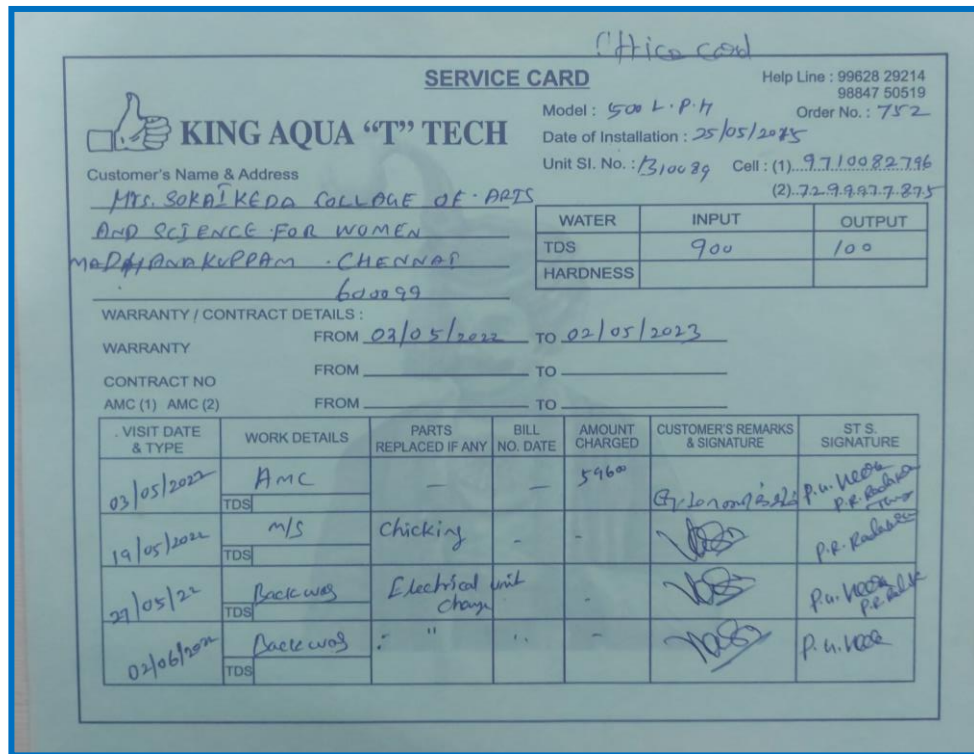 Office card
SERVICE CARD
Help Line : 99628 29214
98847 50519
KING AQUA “T” TECH
Model : 500 L.P.H
Order No. : 752
Date of Installation : 25/05/2015
Unit Sl. No. : B10089 Cell : (1) 9710082796
(2) 7299977875
Customer's Name & Address
M/s. SOKA IKEDA COLLAGE OF ARTS
AND SCIENCE FOR WOMEN
MADHANAKUPPAM . CHENNAI
600099
WATER INPUT OUTPUT
TDS 900 100
HARDNESS
WARRANTY / CONTRACT DETAILS :
WARRANTY FROM 03/05/2022 TO 02/05/2023
CONTRACT NO FROM TO
AMC (1) AMC (2) FROM TO
VISIT DATE & TYPE WORK DETAILS PARTS REPLACED IF ANY BILL NO. DATE AMOUNT CHARGED CUSTOMER'S REMARKS & SIGNATURE ST S. SIGNATURE
03/05/2022 AMC – – 59600
TDS
19/05/2022 m/s Chicking - -
TDS
27/05/22 Backwas Electrical unit change
TDS
02/06/2022 Backwas " -
TDS